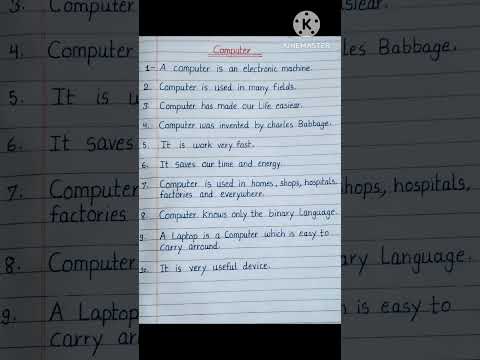 3. Computer
4. Computer
5. It is w
6. It saves
7. Computer
factories
8. Computer
9. A Laptop
carry arr
K
KINEMASTER
Computer
1- A computer is an electronic machine.
2. Computer is used in many fields.
3. Computer has made our Life easiear.
4. Computer was invented by charles Babbage.
5. It is work very fast.
6. It saves our time and energy.
7. Computer is used in homes, shops, hospitals,
factories and everywhere.
8. Computer Knows only the binary Language.
9. A Laptop is a Computer which is easy to
carry arround.
10. It is very useful device.
siear.
harles Babbage.
shops, hospitals,
ary Language.
h is easy to